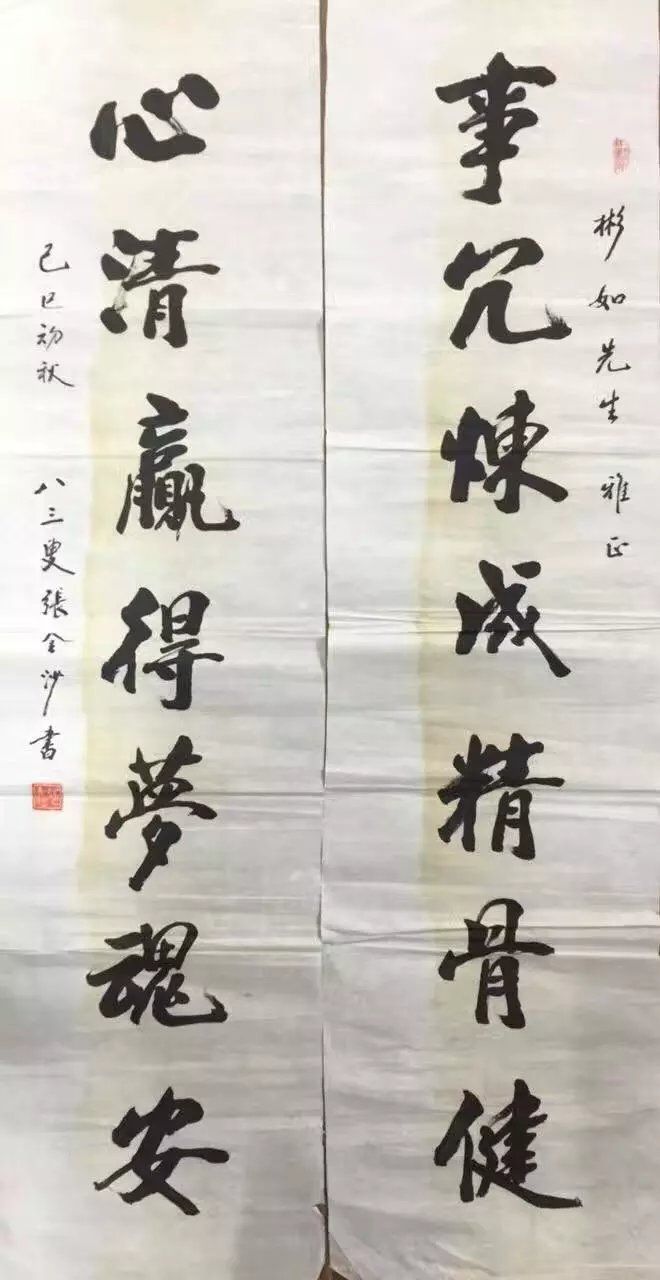 彬如先生 雅正
事冗煉成精骨健
心清贏得夢魂安
己巳初秋 八三叟張全沙書